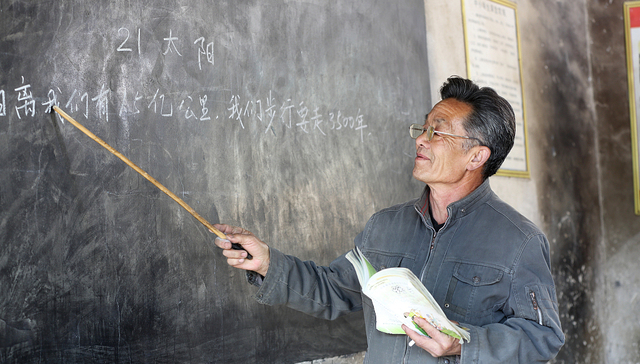 21 太阳
离我们有1.5亿公里，我们步行要走3500年.